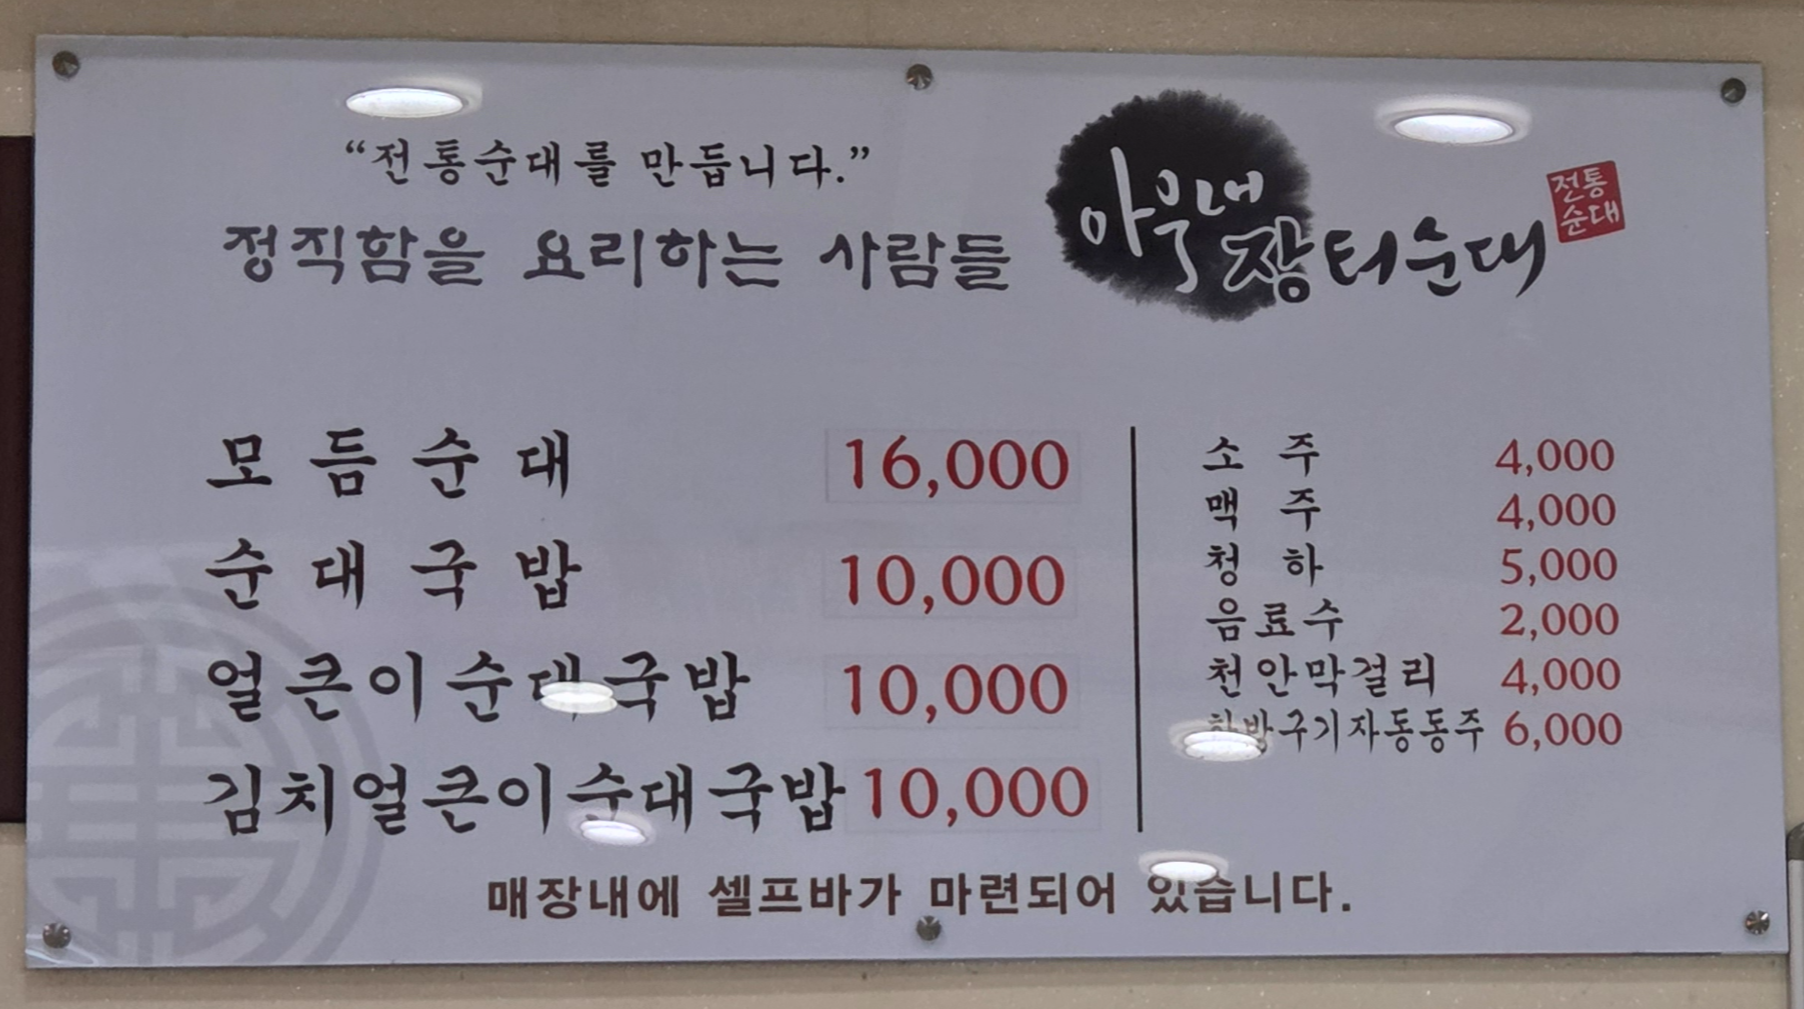 “전통순대를 만듭니다.”
정직함을 요리하는 사람들
아우내
장터순대
전통
순대
모듬순대 16,000
순대국밥 10,000
얼큰이순대국밥 10,000
김치얼큰이순대국밥 10,000
소주 4,000
맥주 4,000
청하 5,000
음료수 2,000
천안막걸리 4,000
한방구기자동동주 6,000
매장내에 셀프바가 마련되어 있습니다.